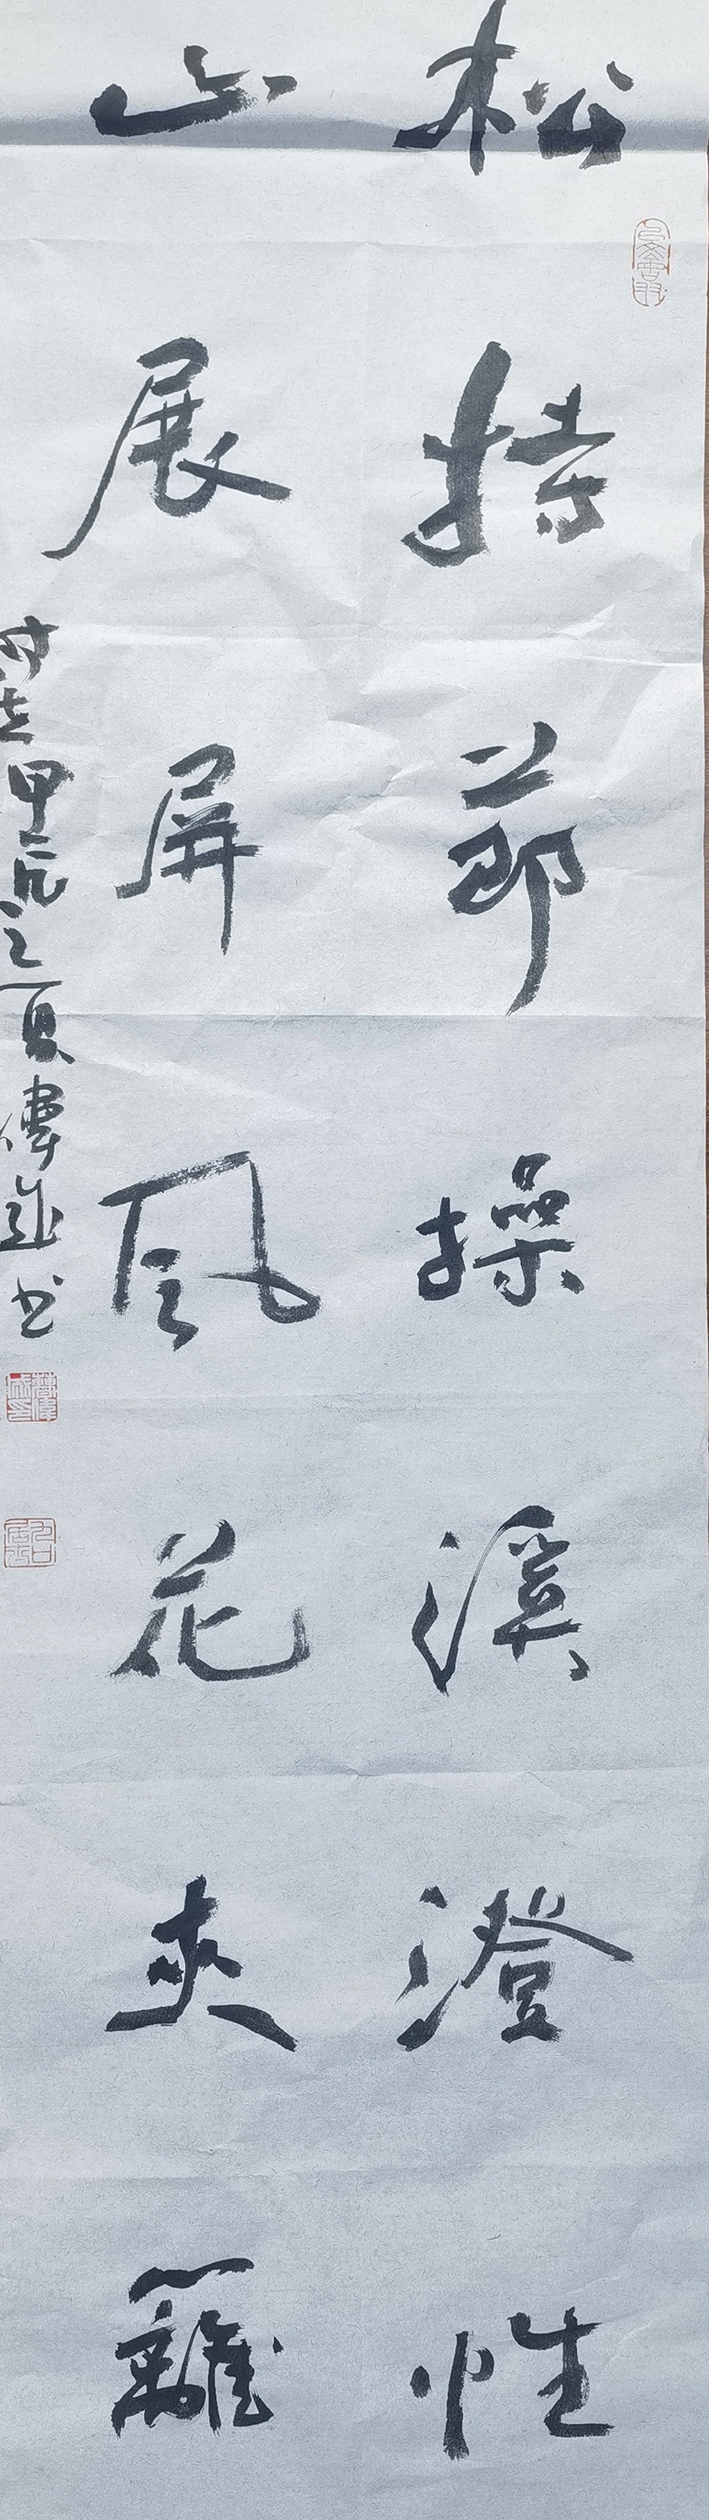 松持節操溪澄性
山展屏風花夾籬
時在甲辰之夏偉成书